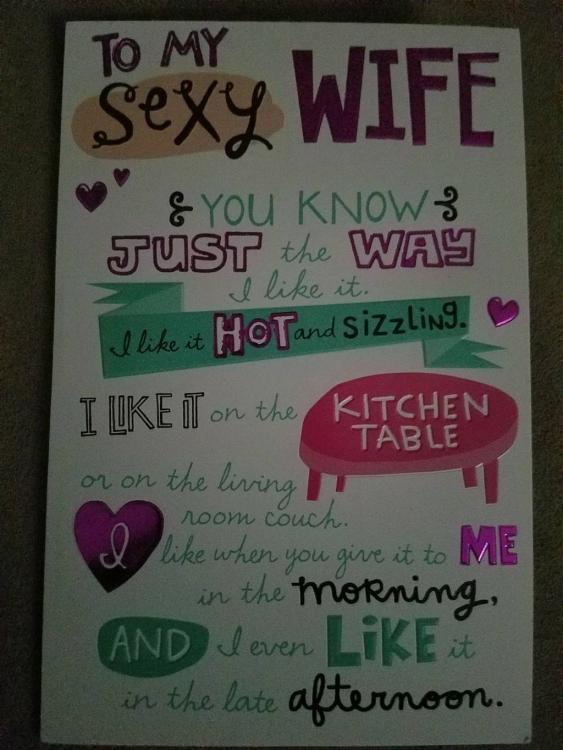 TO MY
SeXY WIFE
YOU KNOW
JUST the WAY
I like it.
I like it HOT and SizzLiNg.
I LIKE IT on the KITCHEN
TABLE
or on the living
room couch.
I like when you give it to ME
in the morning,
AND I even LiKE it
in the late afternoon.